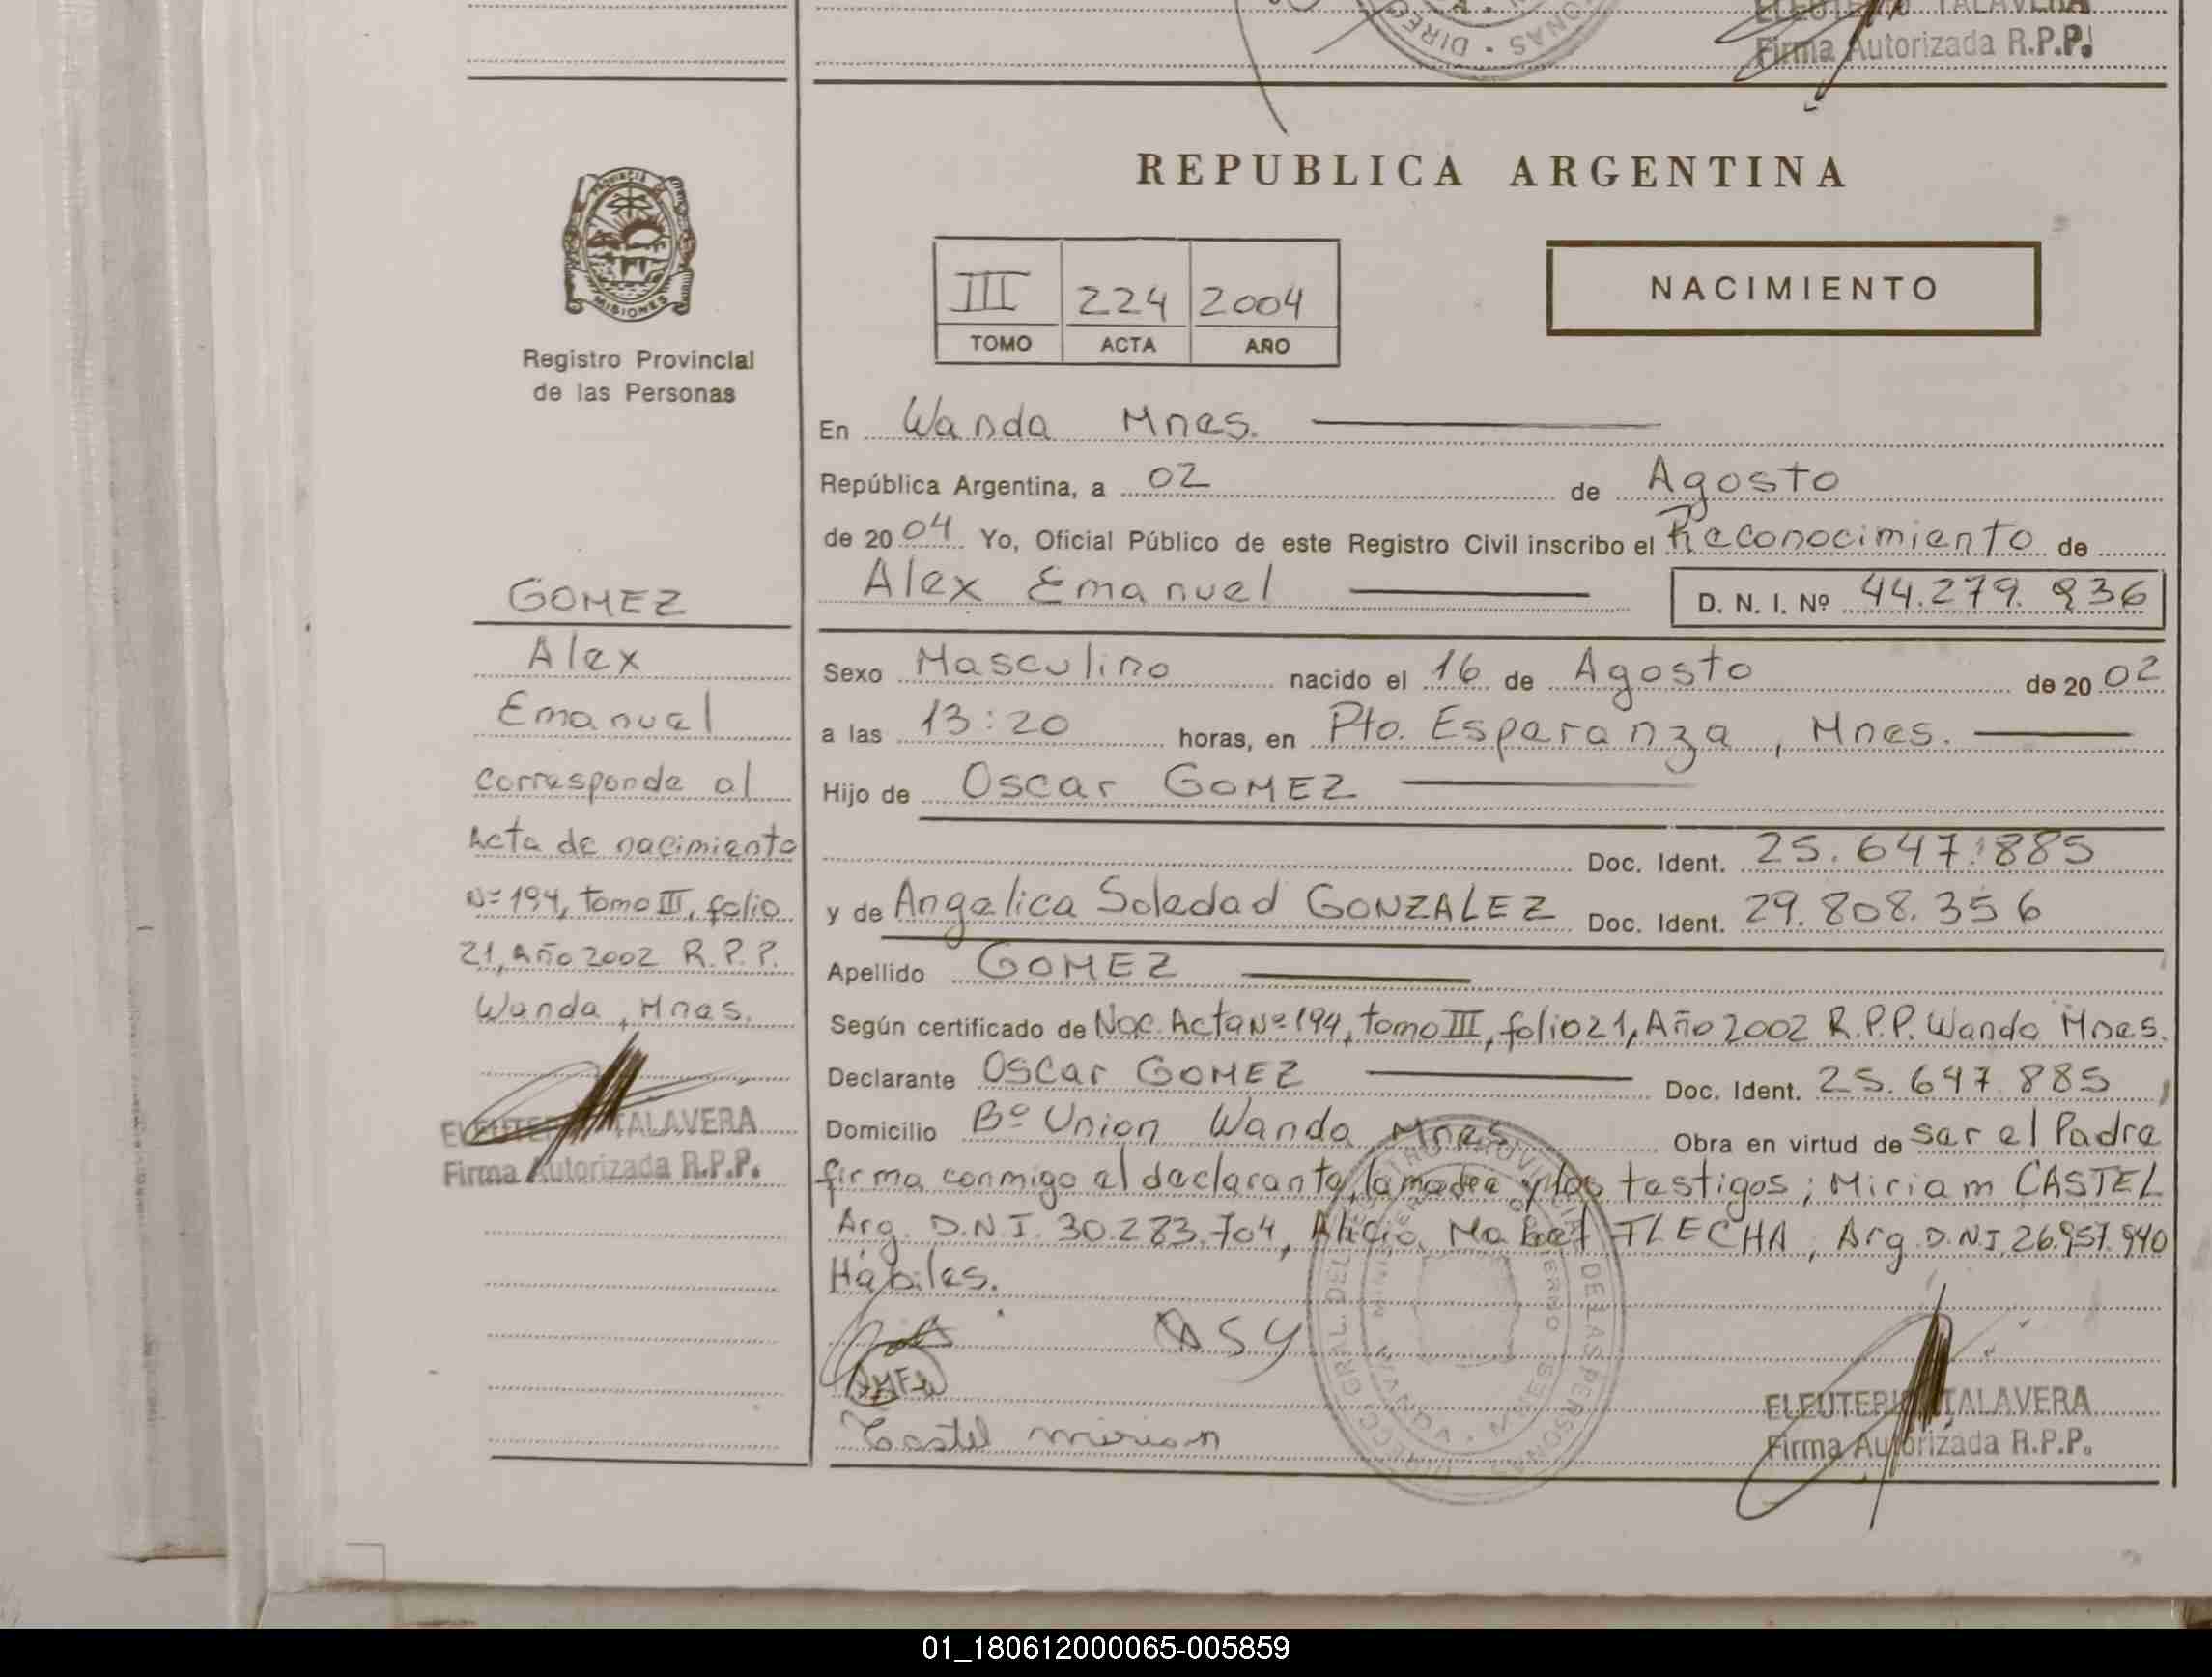 ELEUTERIO TALAVERA
Firma Autorizada R.P.P.
PROVINCIA DE
MISIONES
Registro Provincial
de las Personas
GOMEZ
Alex
Emanuel
corresponde al
Acta de nacimiento
Nº 194, tomo III, folio
21, Año 2002 R.P.P.
Wanda, Mnes.
ELEUTERIO TALAVERA
Firma Autorizada R.P.P.
REPUBLICA ARGENTINA
III 224 2004
TOMO ACTA AÑO
NACIMIENTO
En Wanda Mnes.
República Argentina, a 02 de Agosto
de 2004 Yo, Oficial Público de este Registro Civil inscribo el Reconocimiento de
Alex Emanuel D. N. I. Nº 44.279.836
Sexo Masculino nacido el 16 de Agosto de 2002
a las 13:20 horas, en Pto. Esperanza, Mnes.
Hijo de Oscar GOMEZ
Doc. Ident. 25.647.885
y de Angelica Soledad GONZALEZ Doc. Ident. 29.808.356
Apellido GOMEZ
Según certificado de Nac. Acta Nº 194, tomo III, folio 21, Año 2002 R.P.P. Wanda Mnes.
Declarante Oscar GOMEZ Doc. Ident. 25.647.885
Domicilio Bº Union Wanda Mnes. Obra en virtud de ser el Padre
firma conmigo el declarante, la madre y los testigos; Miriam CASTEL
Arg. D.N.I. 30.283.704, Alicia Mabel FLECHA, Arg. D.N.I 26.957.940
Hábiles.
ASY
Castel miriam
ELEUTERIO TALAVERA
Firma Autorizada R.P.P.
01_180612000065-005859